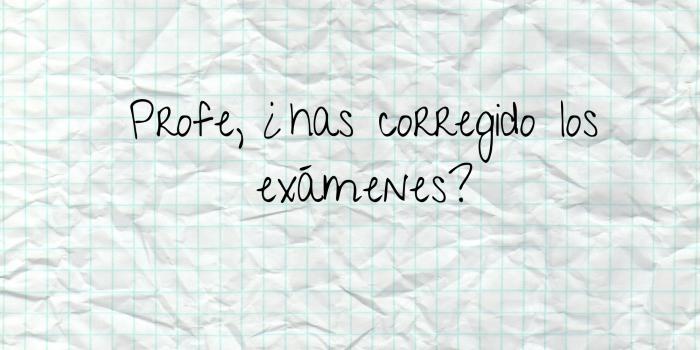 Profe, ¿has corregido los
exámenes?